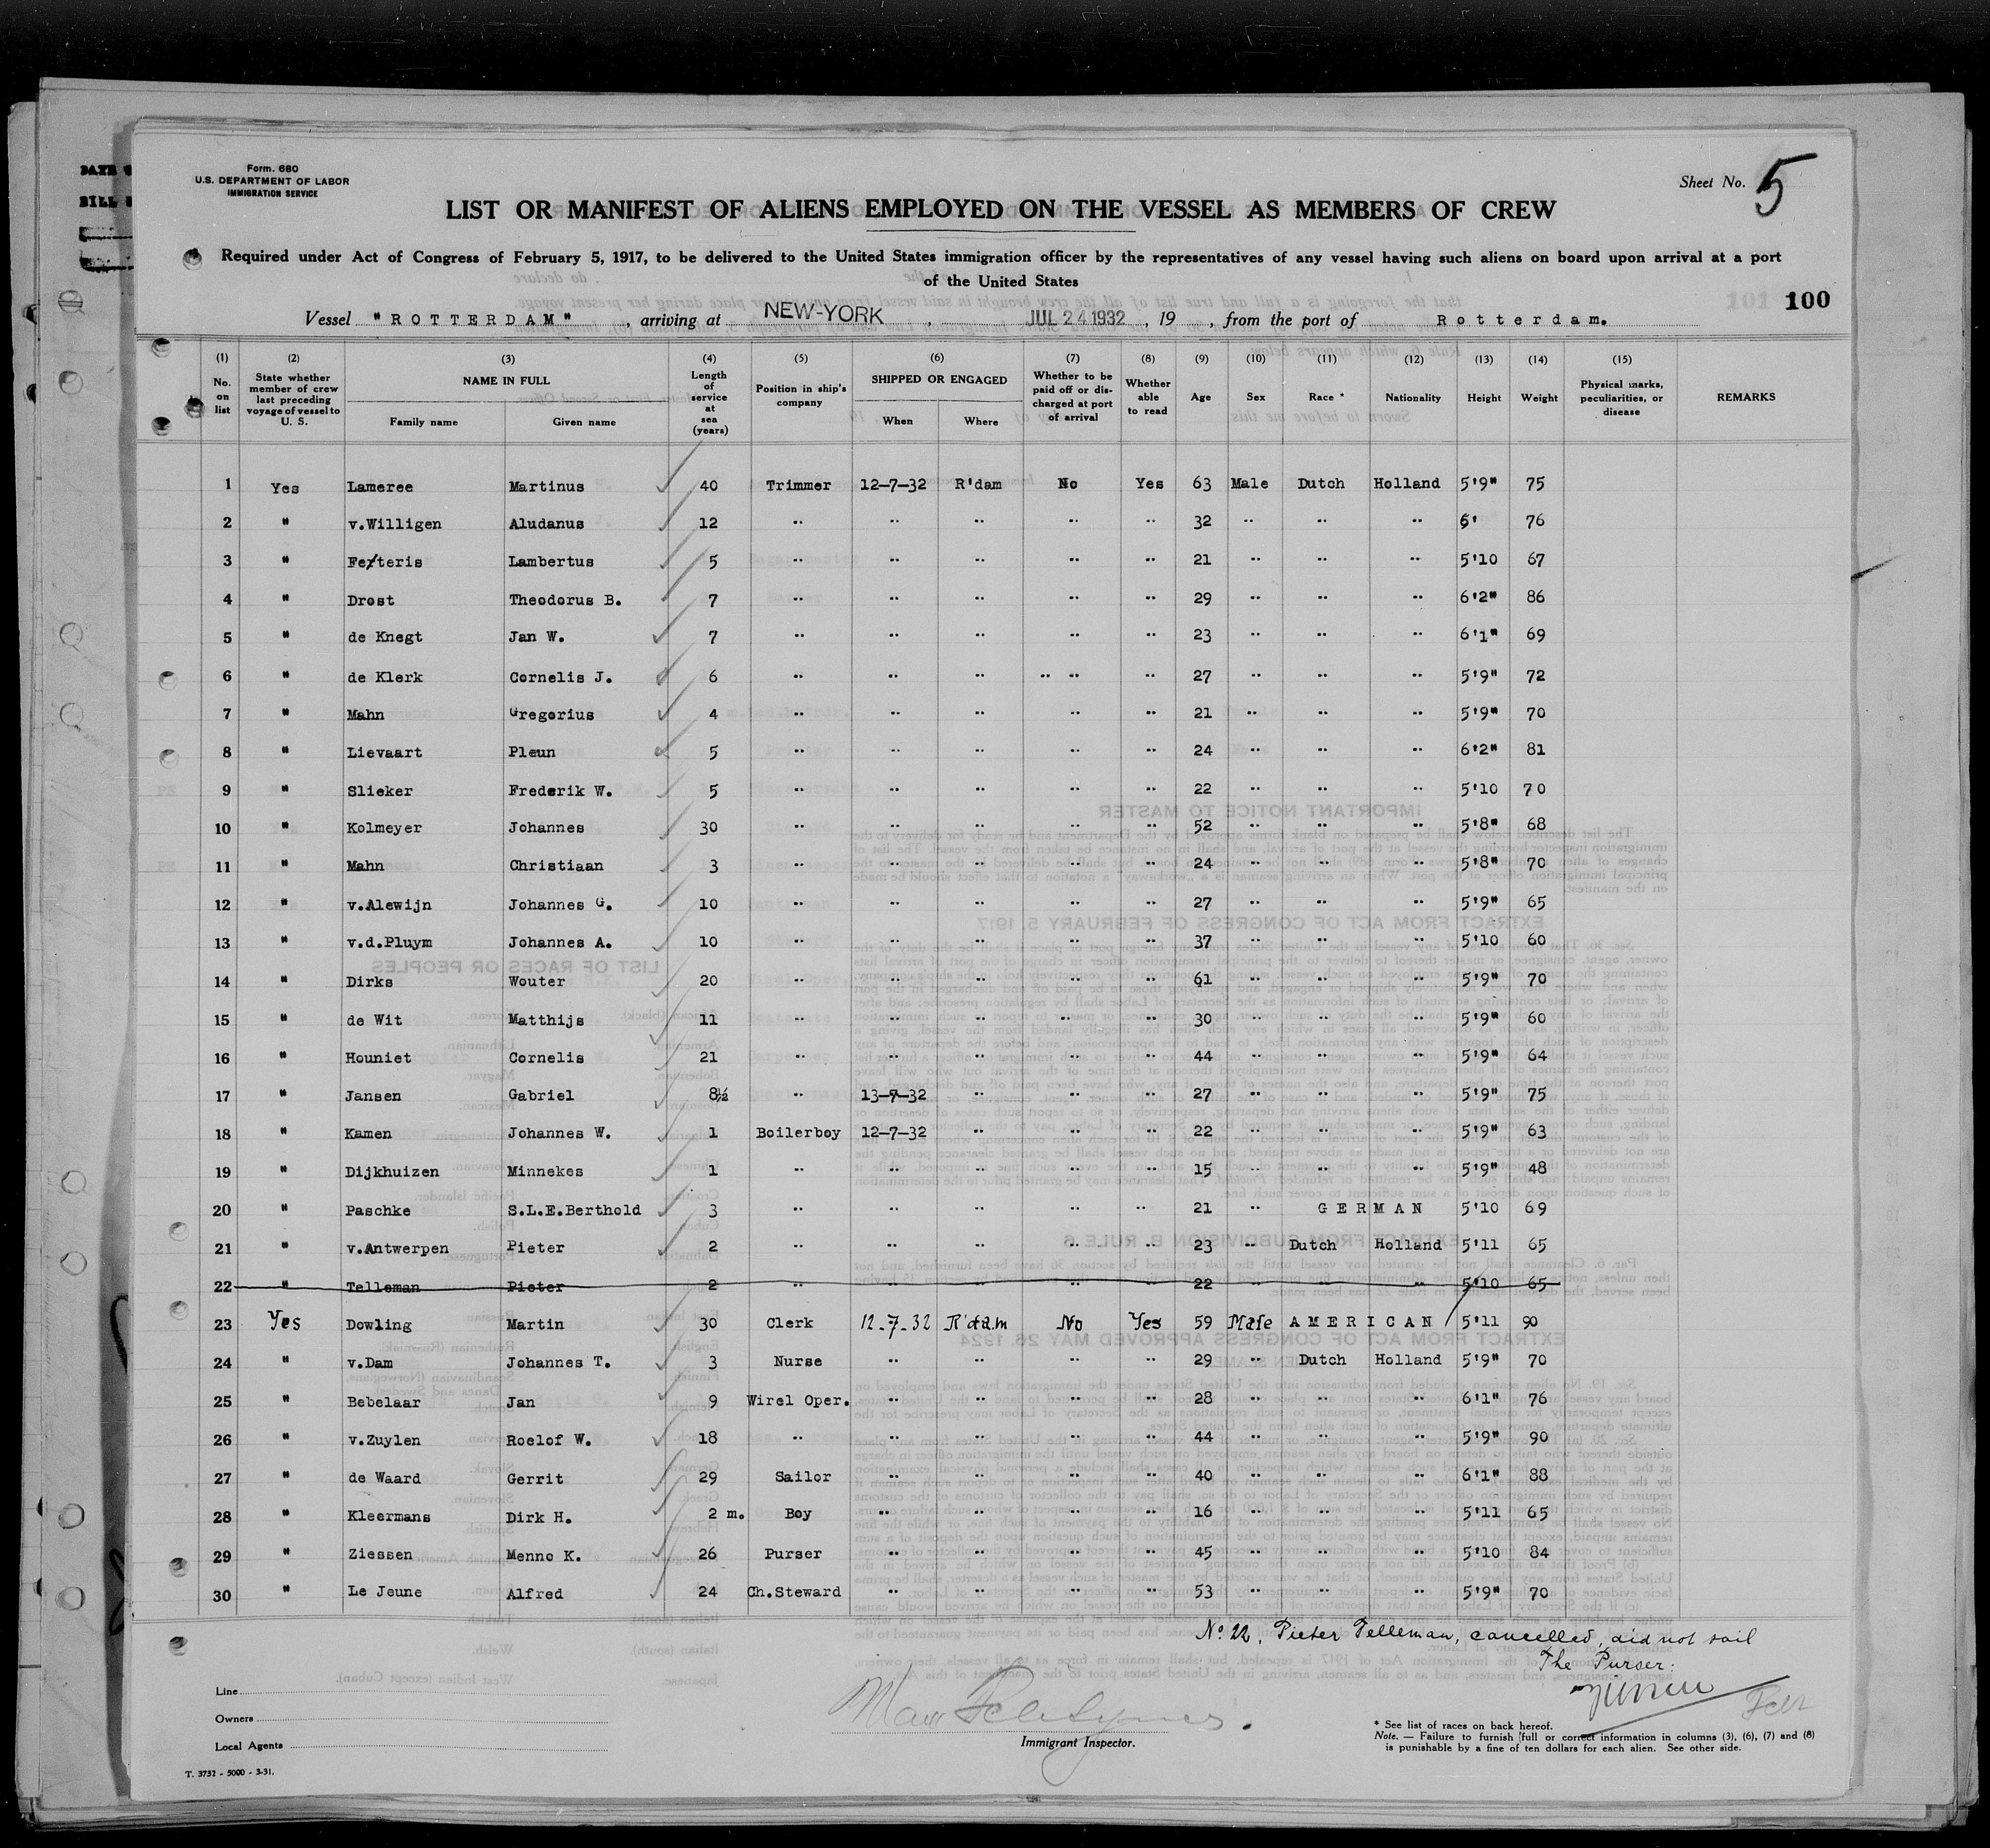 Form. 680
U.S. DEPARTMENT OF LABOR
IMMIGRATION SERVICE
Sheet No. 5
LIST OR MANIFEST OF ALIENS EMPLOYED ON THE VESSEL AS MEMBERS OF CREW
Required under Act of Congress of February 5, 1917, to be delivered to the United States immigration officer by the representatives of any vessel having such aliens on board upon arrival at a port
of the United States
100
Vessel "ROTTERDAM", arriving at NEW-YORK, JUL 24 1932, 19 , from the port of Rotterdam.
(1) No. on list (2) State whether member of crew last preceding voyage of vessel to U. S. (3) NAME IN FULL Family name Given name (4) Length of service at sea (years) (5) Position in ship's company (6) SHIPPED OR ENGAGED When Where (7) Whether to be paid off or discharged at port of arrival (8) Whether able to read (9) Age (10) Sex (11) Race * (12) Nationality (13) Height (14) Weight (15) Physical marks, peculiarities, or disease REMARKS
1 Yes Lameree Martinus 40 Trimmer 12-7-32 R'dam No Yes 63 Male Dutch Holland 5'9" 75
2 " v.Willigen Aludanus 12 " " " " " 32 " " " 6' 76
3 " Fe/teris Lambertus 5 " " " " " 21 " " " 5'10 67
4 " Drost Theodorus B. 7 " " " " " 29 " " " 6'2" 86
5 " de Knegt Jan W. 7 " " " " " 23 " " " 6'1" 69
6 " de Klerk Cornelis J. 6 " " " " " " 27 " " " 5'9" 72
7 " Mahn Gregorius 4 " " " " " 21 " " " 5'9" 70
8 " Lievaart Pleun 5 " " " " " 24 " " " 6'2" 81
9 " Slieker Frederik W. 5 " " " " " 22 " " " 5'10 70
10 " Kolmeyer Johannes 30 " " " " " 52 " " " 5'8" 68
11 " Mahn Christiaan 3 " " " " " 24 " " " 5'8" 70
12 " v.Alewijn Johannes G. 10 " " " " " 27 " " " 5'9" 65
13 " v.d.Pluym Johannes A. 10 " " " " " 37 " " " 5'10 60
14 " Dirks Wouter 20 " " " " " 61 " " " 5'9" 70
15 " de Wit Matthijs 11 " " " " " 30 " " " 5'9" 60
16 " Houniet Cornelis 21 " " " " " 44 " " " 5'9" 64
17 " Jansen Gabriel 8½ " 13-7-32 " " " 27 " " " 5'9" 75
18 " Kamen Johannes W. 1 Boilerboy 12-7-32 " " " 22 " " " 5'9" 63
19 " Dijkhuizen Minnekes 1 " " " " " 15 " " " 5'9" 48
20 " Paschke S.L.E.Berthold 3 " " " " " 21 " GERMAN 5'10 69
21 " v.Antwerpen Pieter 2 " " " " " 23 " Dutch Holland 5'11 65
22 " Telleman Pieter 2 " " " " " 22 " " " 5'10 65
23 Yes Dowling Martin 30 Clerk 12-7-32 R'dam No Yes 59 Male AMERICAN 5'11 90
24 " v.Dam Johannes T. 3 Nurse " " " " 29 " Dutch Holland 5'9" 70
25 " Bebelaar Jan 9 Wirel Oper. " " " " 28 " " " 6'1" 76
26 " v.Zuylen Roelof W. 18 " " " " " 44 " " " 5'9" 90
27 " de Waard Gerrit 29 Sailor " " " " 40 " " " 6'1" 88
28 " Kleermans Dirk H. 2 m. Boy " " " " 16 " " " 5'11 65
29 " Ziessen Menno K. 26 Purser " " " " 45 " " " 5'10 84
30 " Le Jeune Alfred 24 Ch.Steward " " " " 53 " " " 5'9" 70
No. 22, Pieter Telleman, cancelled, did not sail
The Purser:
Line
Owners
Local Agents
Immigrant Inspector.
* See list of races on back hereof.
Note. — Failure to furnish full or correct information in columns (3), (6), (7) and (8)
is punishable by a fine of ten dollars for each alien. See other side.
T. 3732 - 5000 - 3-31.